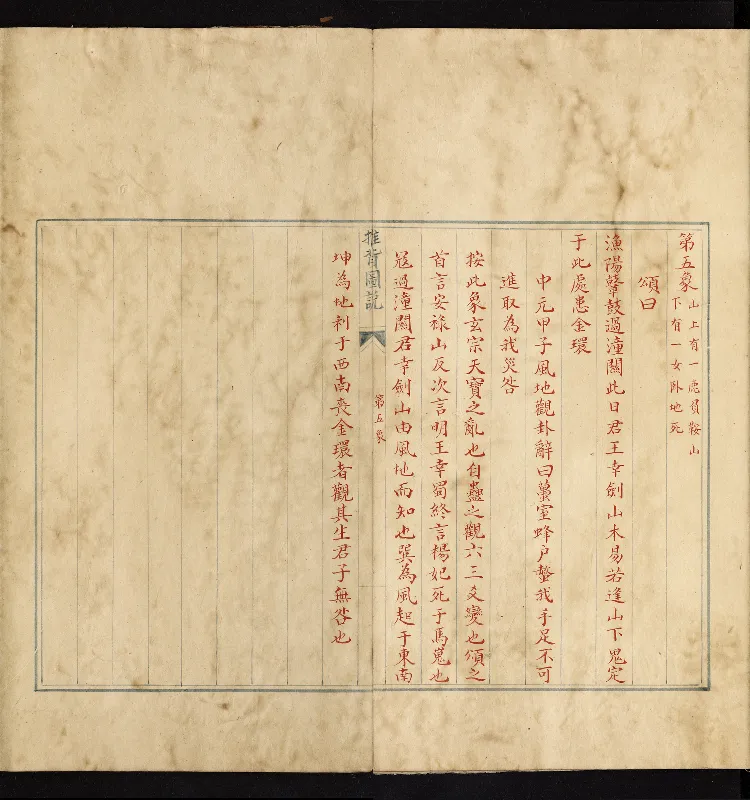 第五象
山上有一鹿負鞍山
下有一女卧地死
頌曰
漁陽鼙鼓過潼關此日君王幸劍山木易若逢山下鬼定
于此處喪金環
中元甲子風地觀卦辭曰蠆室蜂户螫我手足不可
進取為我災咎
按此象玄宗天寶之亂也自蠱之觀六三爻變也頌之
首言安祿山反次言明王幸蜀終言楊妃死于馬嵬也
寇過潼關君幸劍山由風地而知也巽為風起于東南
推背圖說
第五象
坤為地利于西南喪金環者觀其生君子無咎也